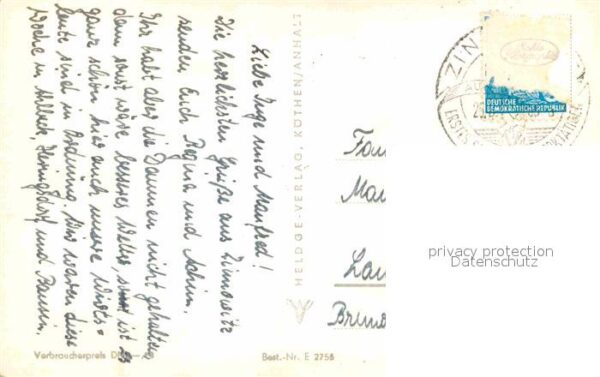 Liebe Inge und Manfred!
Die herzlichsten Grüße aus Zinnowitz
senden Euch Regina und Achim.
Ihr habt aber die Daumen nicht gehalten
denn sonst wäre besseres Wetter, sonst ist es
ganz schön hier auch unsere Wirts-
leute sind in Ordnung. Wir waren diese
Woche in Heringsdorf und Bansin.
HELDGE-VERLAG, KÖTHEN/ANHALT
Fam
Man
Lau
Verbraucherpreis
Best.-Nr. E 2756
ZIN
DEUTSCHE
DEMOKRATISCHE REPUBLIK
ERSTES
privacy protection
Datenschutz